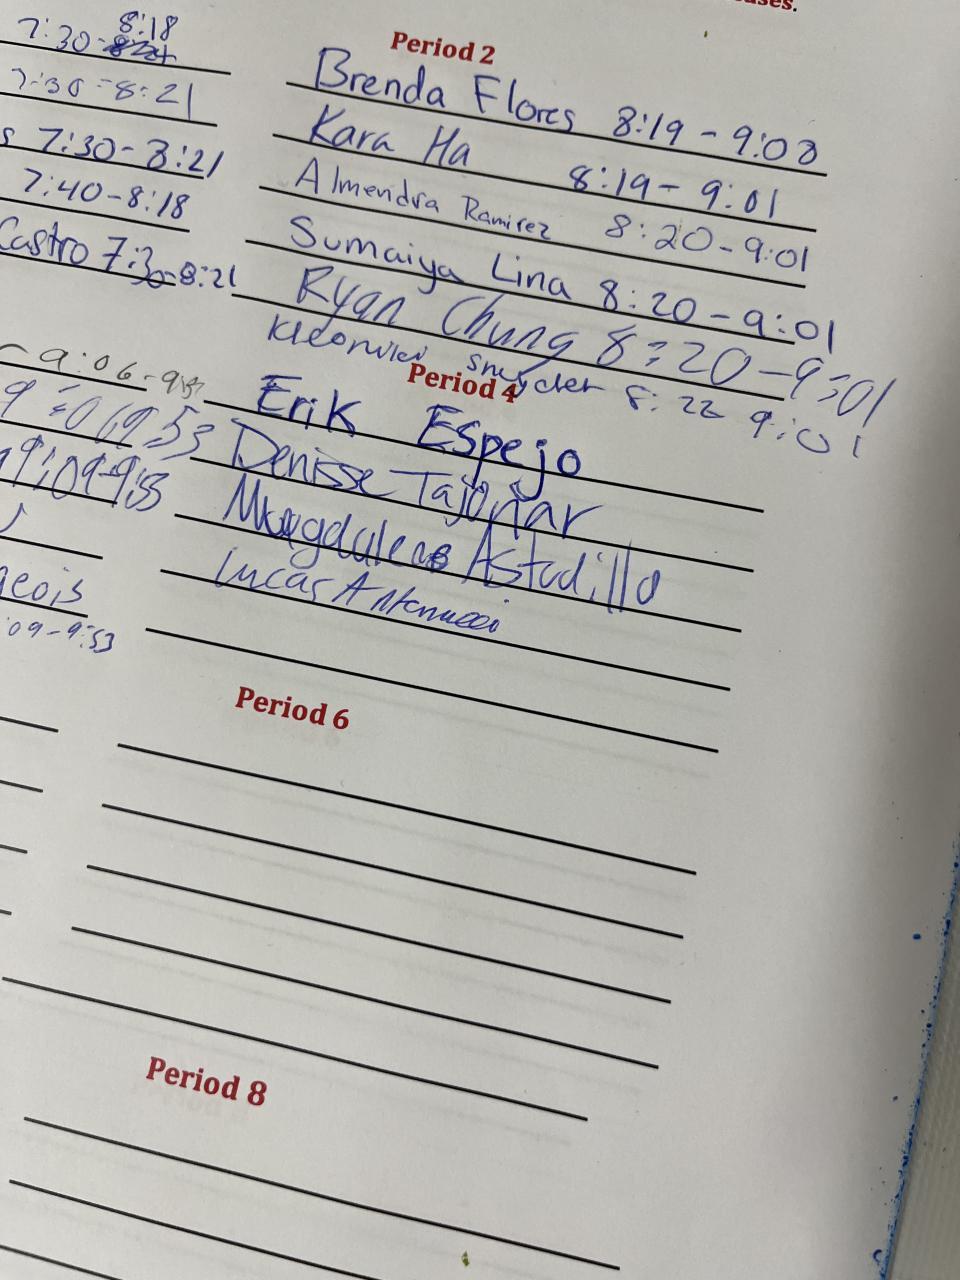 ases.
8:18
7:30-
7:30-8:21
s 7:30-8:21
7:40-8:18
Castro 7:30-8:21
Period 2
Brenda Flores 8:19-9:03
Kara Ha 8:19-9:01
Almendra Ramirez 8:20-9:01
Sumaiya Lina 8:20-9:01
Ryan Chung 8:20-9:01
Snyder 8:22 9:01
9:06-9:53
9:09-9:53
geois
:09-9:53
Period 4
Erik Espejo
Denisse Tajonar
Magdalena Astudillo
Lucas Antonucci
Period 6
Period 8